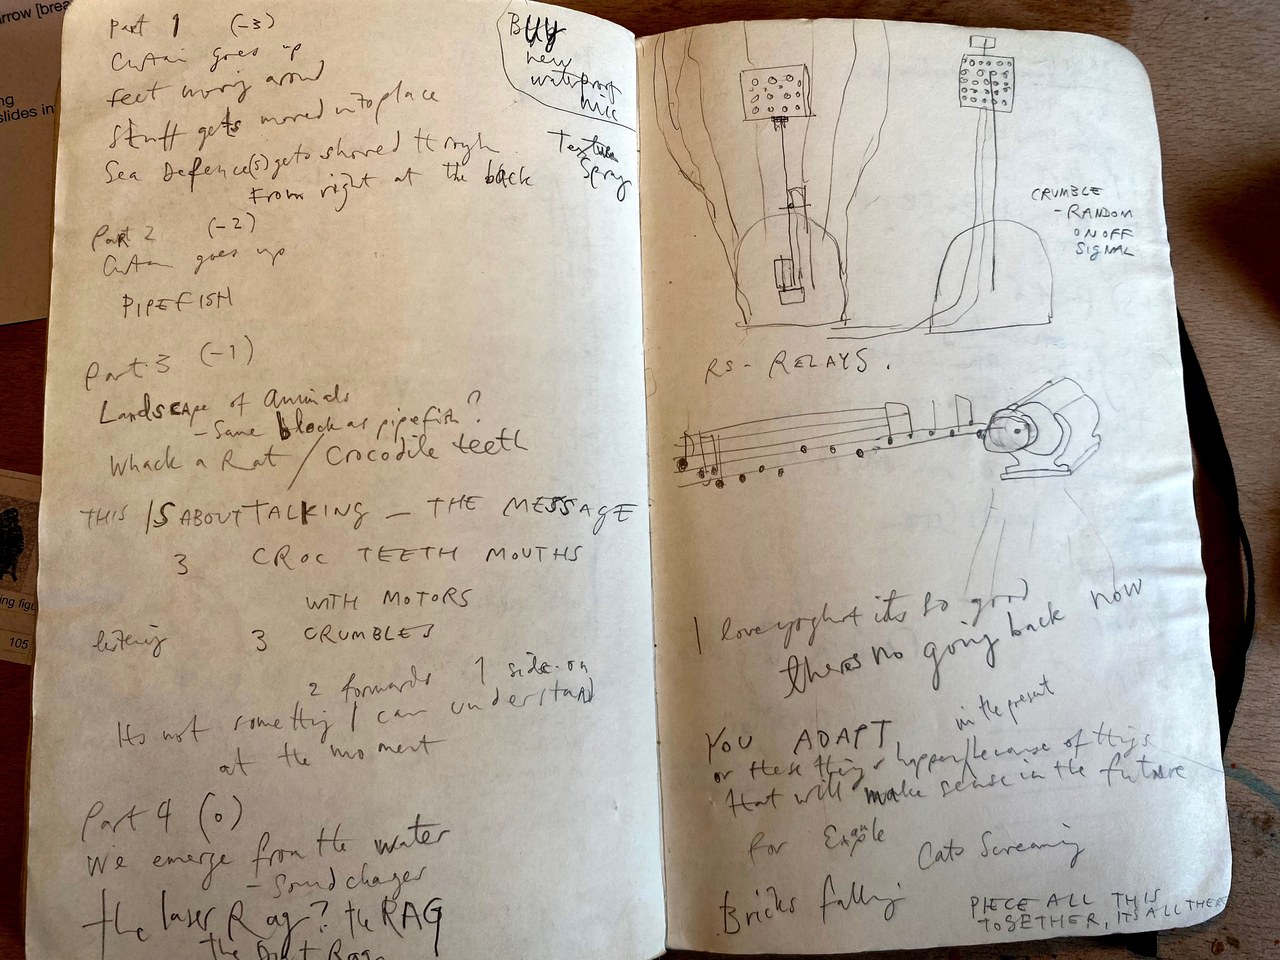 Part 1 (-3)
Curtain goes up
feet moving around
Stuff gets moved into place
Sea Defence(s) gets shoved through
From right at the back
BUY
new
waterproof
mic
Texture
Spray
Part 2 (-2)
Curtain goes up
PIPEFISH
Part 3 (-1)
Landscape of animals
- Same block as pipefish?
Whack a Rat / Crocodile teeth
THIS IS ABOUT TALKING - THE MESSAGE
3 CROC TEETH MOUTHS
WITH MOTORS
listening 3 CRUMBLES
2 forwards 1 side-on
Its not something I can understand
at the moment
Part 4 (0)
We emerge from the water
- Sound changes
the laser Rag? the RAG
the Dirt Rag
CRUMBLE
- RANDOM
ON OFF
SIGNAL
RS - RELAYS.
I love yoghurt its so good
theres no going back now
YOU ADAPT in the present
or these things happen because of things
that will make sense in the future
for Example Cats Screaming
Bricks falling
PIECE ALL THIS
TOGETHER, ITS ALL THERE
arrow [brea
ng
slides in
ing fig
105